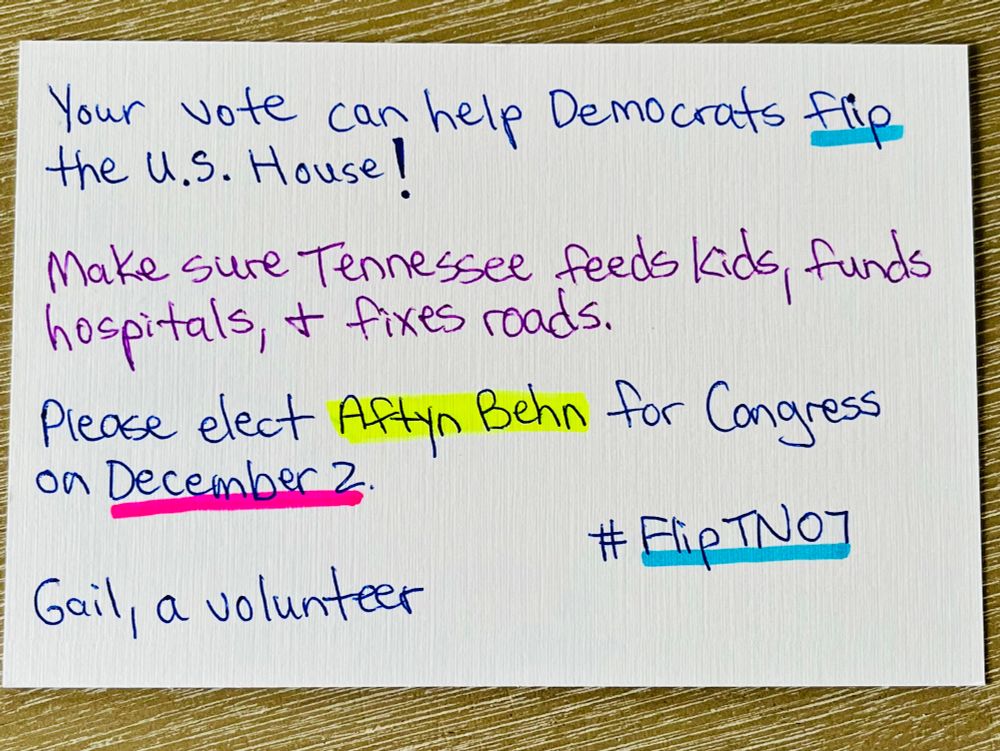 Your vote can help Democrats flip
the U.S. House!
Make sure Tennessee feeds kids, funds
hospitals, + fixes roads.
Please elect Aftyn Behn for Congress
on December 2.
#FlipTN07
Gail, a volunteer